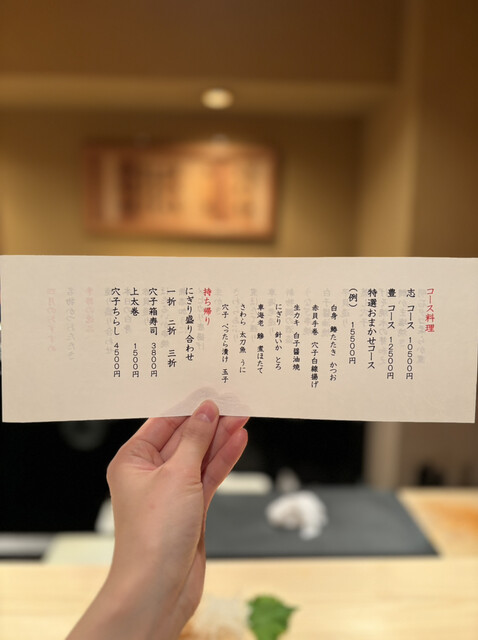 コース料理
志 コース 10500円
豊 コース 12500円
特選おまかせコース
15500円
(例)
白身 鯵たたき かつお
赤貝手巻 穴子白焼揚げ
生カキ 白子醤油焼
にぎり 針いか とろ
車海老 鯵 煮ほたて
さわら 太刀魚 うに
穴子 べったら漬け 玉子
持ち帰り
にぎり盛り合わせ
一折 二折 三折
穴子箱寿司 3800円
上太巻 1500円
穴子ちらし 4500円